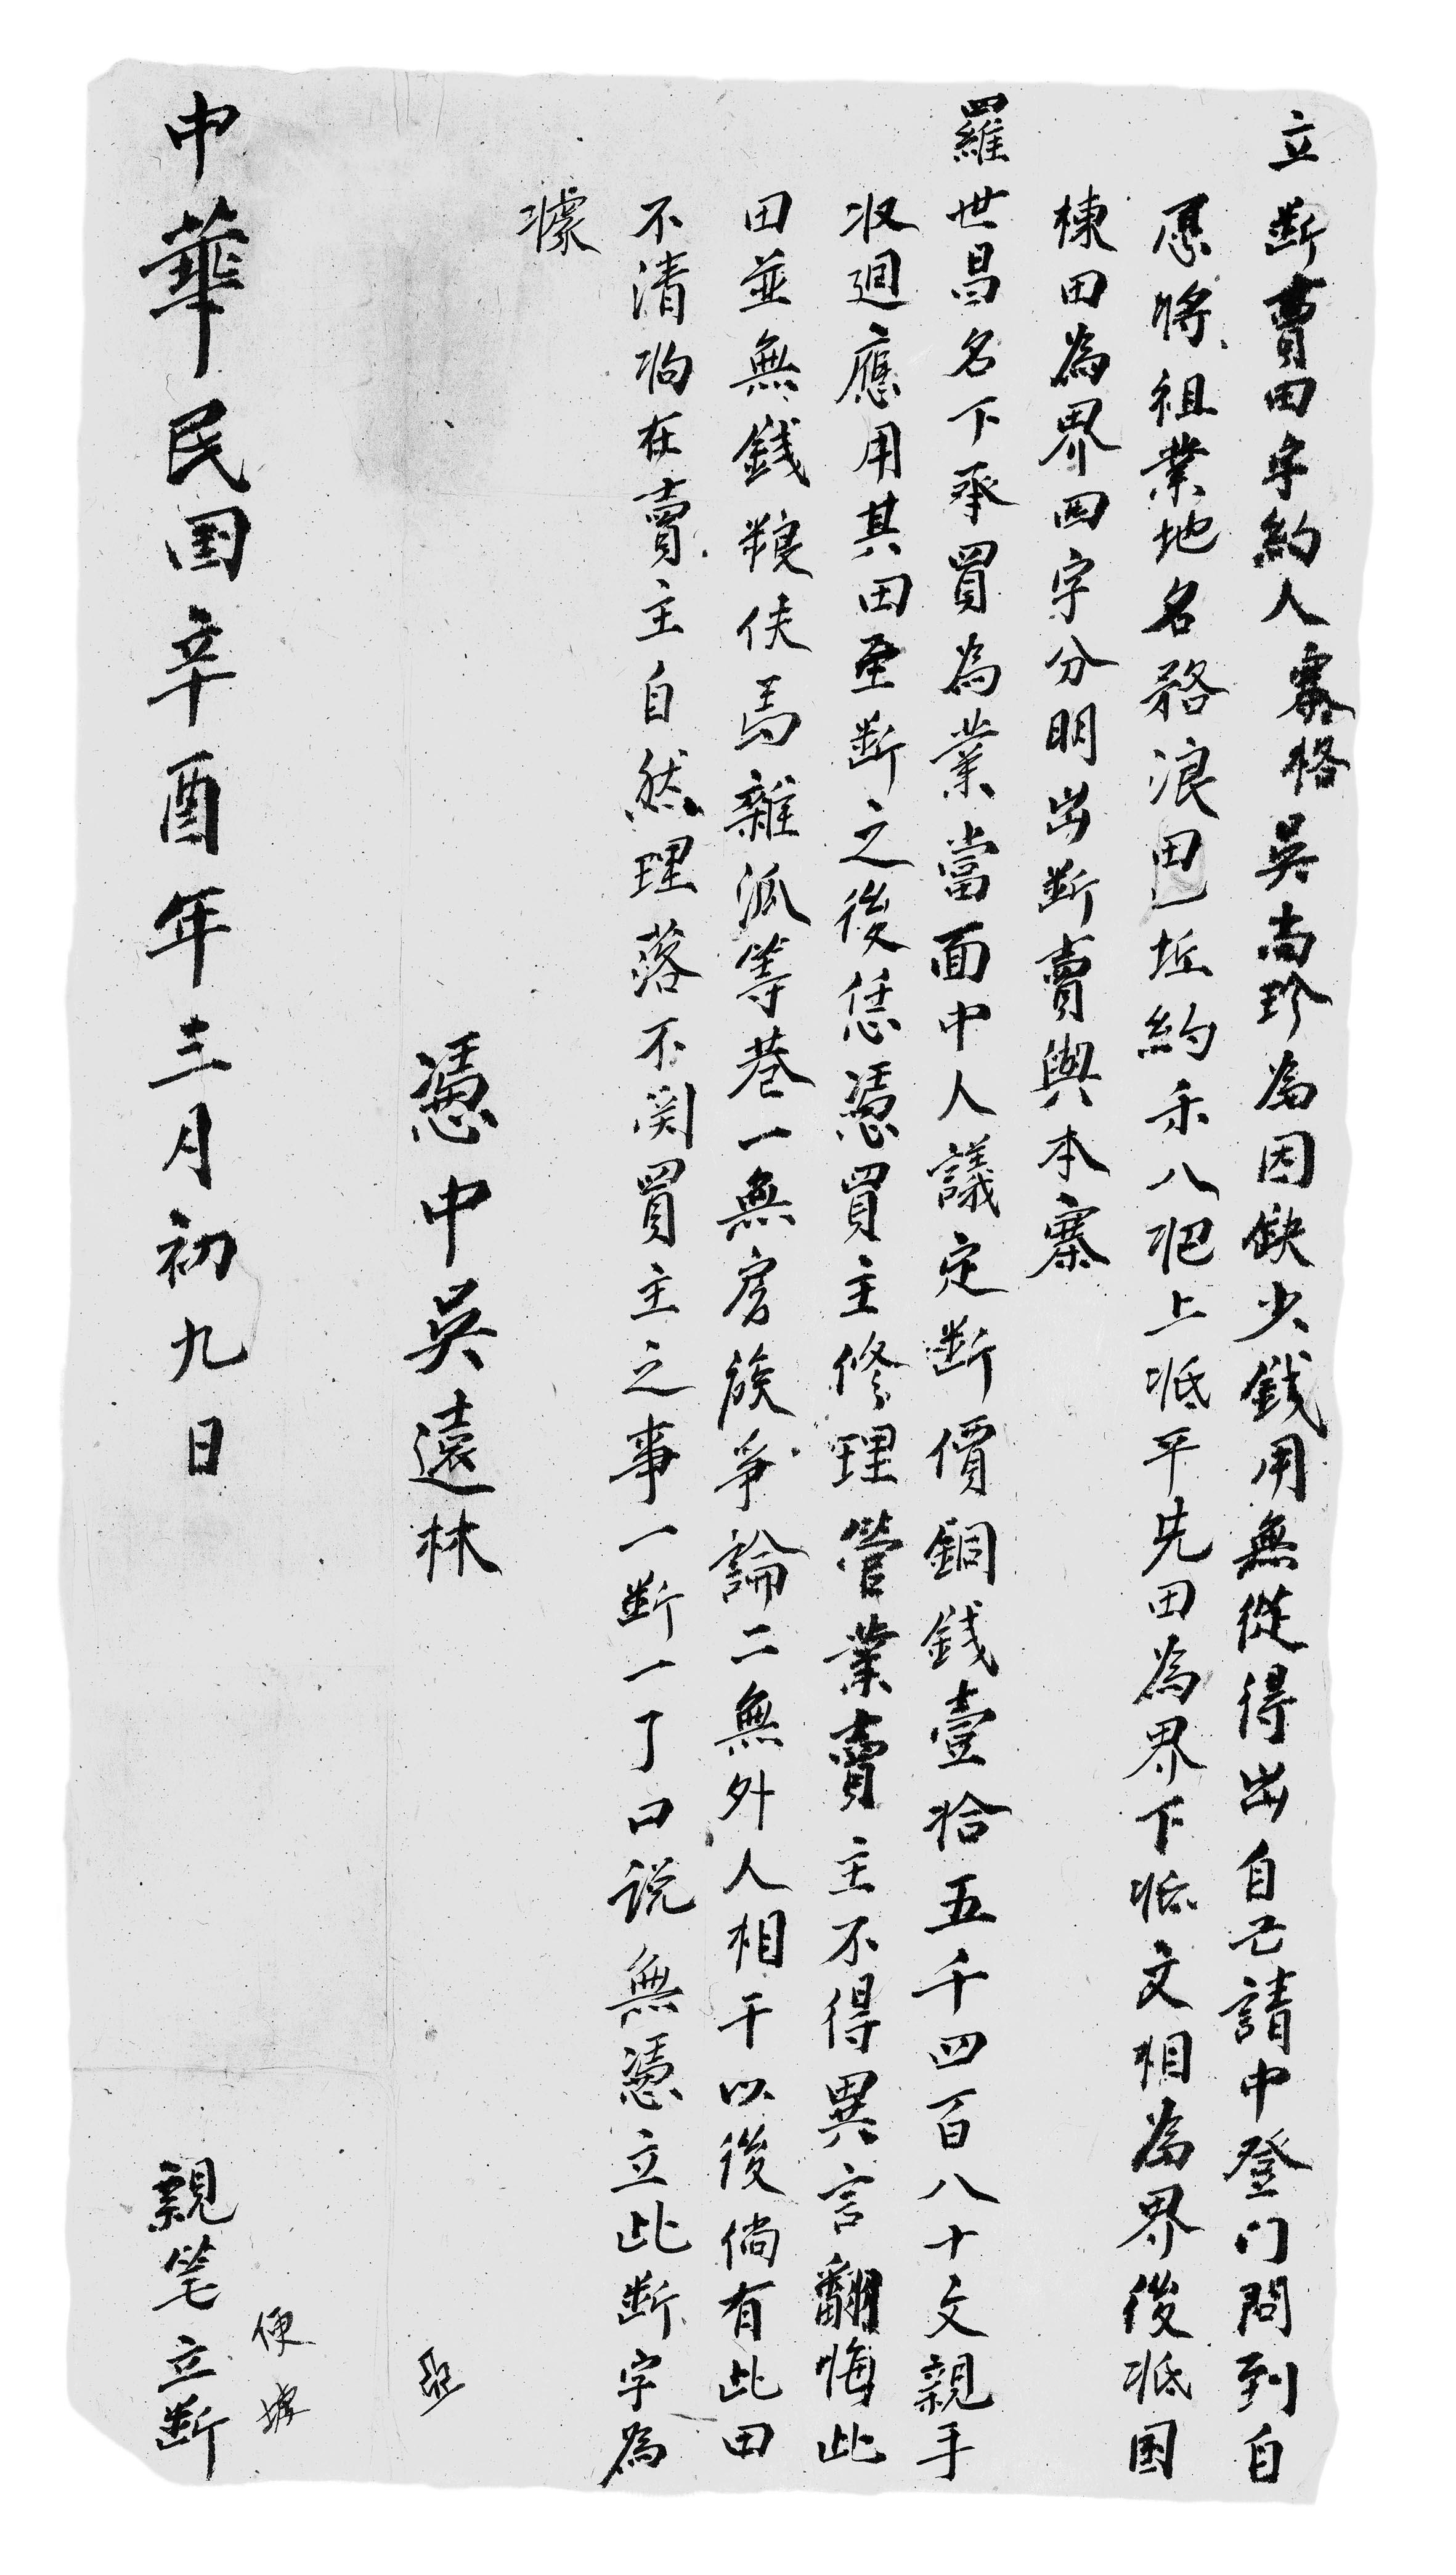 立断賣田字約人寨格吳尚珍為因缺少錢用無從得出自己請中登门問到自
愿將祖業地名務浪田一坵約禾八把上抵平先田為界下抵文相為界後抵困
棟田為界四字分明出断賣與本寨
羅世昌名下承買為業當面中人議定断價銅錢壹拾五千四百八十文親手
收廻應用其田至断之後恁憑買主修理管業賣主不得異言翻悔此
田並無錢粮伕馬雜派等巷一無房族爭論二無外人相干以後倘有此田
不清抅在賣主自然理落不関買主之事一断一了口説無憑立此断字為
據
憑中吳遠林
中華民国辛酉年三月初九日
親笔立断